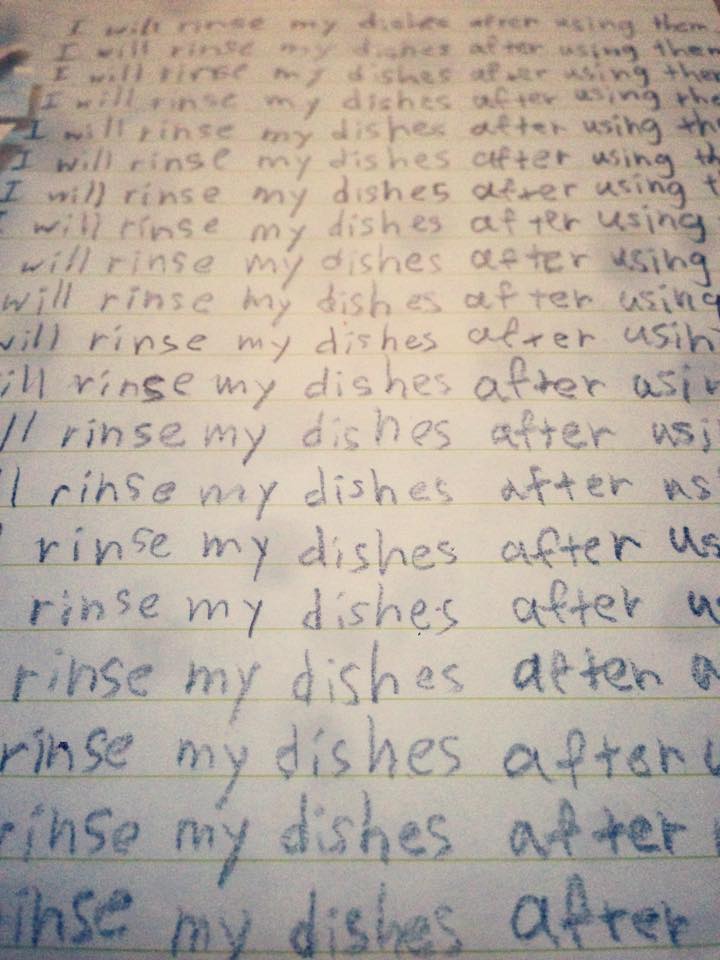 I will rinse my dishes after using them.
I will rinse my dishes after using them
I will rinse my dishes after using them
I will rinse my dishes after using the
I will rinse my dishes after using th
I will rinse my dishes after using th
I will rinse my dishes after using t
I will rinse my dishes after using
will rinse my dishes after using
will rinse my dishes after using
will rinse my dishes after usin
ill rinse my dishes after usin
ll rinse my dishes after usi
l rinse my dishes after us
rinse my dishes after us
rinse my dishes after u
rinse my dishes after u
rinse my dishes after u
rinse my dishes after
inse my dishes after